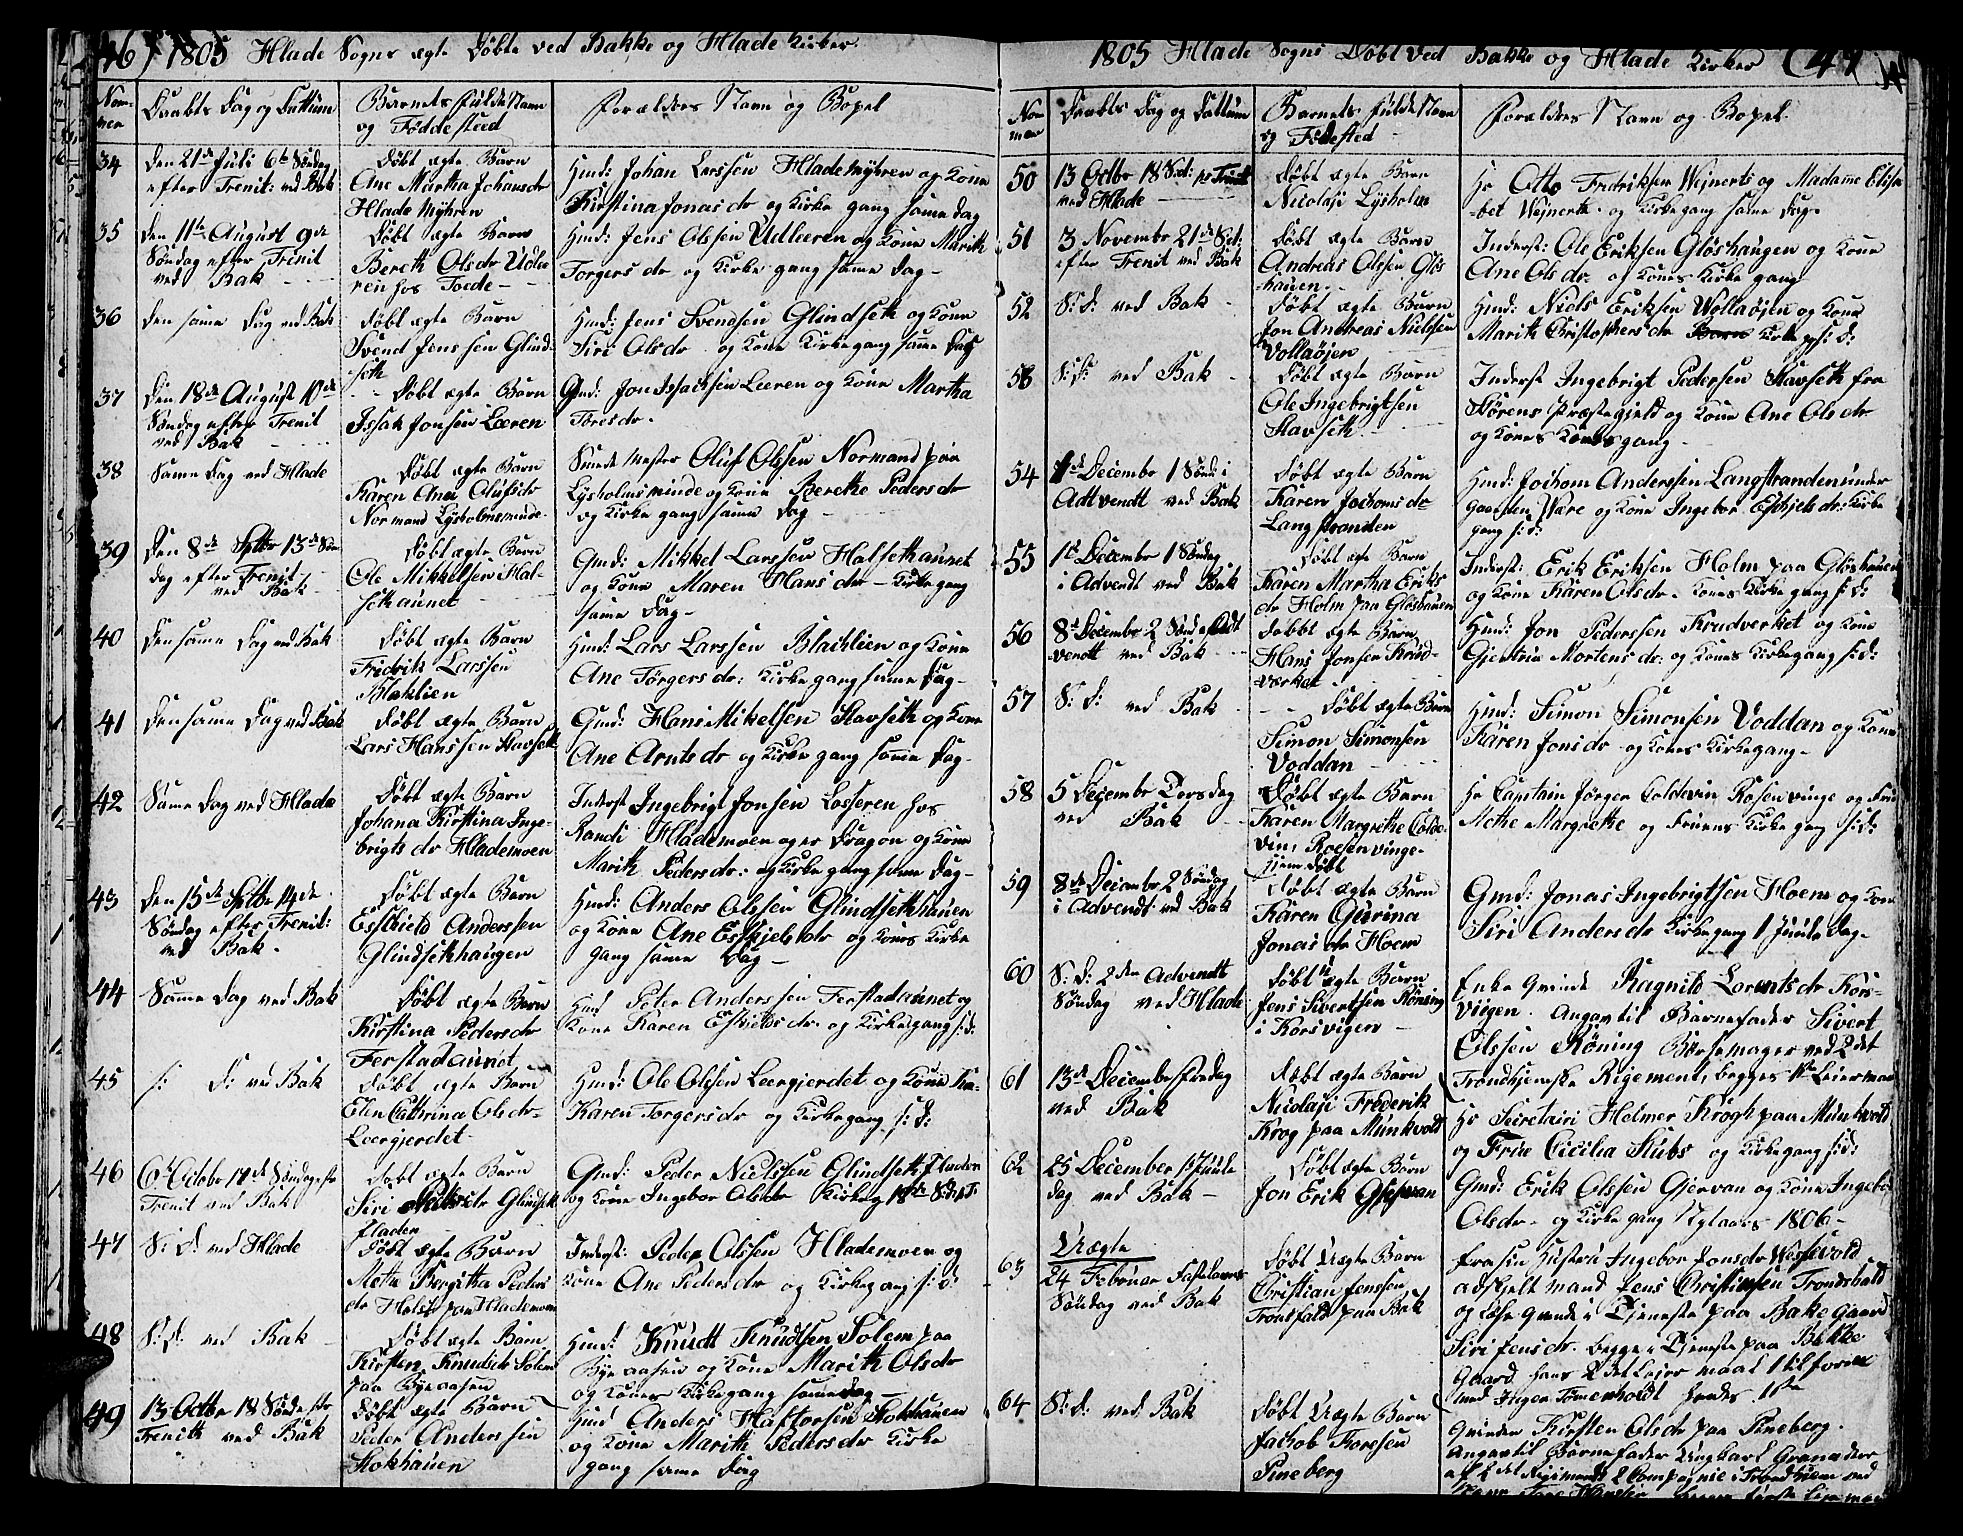 46) 1805 Hlade Sogns ægte Døbte ved Bakke og Hlade Kirker.
Nom-
mer
Daabts Dag og Dattum
Barnets fulde Navn
og Føddesteed
Forældres Navn og Bopel
34
Den 21de Juli 6te Søndag
efter Trenit: ved Bak
Døbt ægte Barn
Ane Martha Johansdr
Hlade Myhren
Hmd: Johan Larssen Hlademyhren og Kone
Kirstina Jonasdr og Kirke gang samme Dag
35
Den 11te August 9de
Søndag efter Trenit
ved Bak
Døbt ægte Barn
Bereth Olsdr Udlee
ren hos Toede
Hmd: Jens Olssen Udleeren og Kone Marith
Torgersdr og Kirke gang samme Dag -
36
Den samme Dag ved Bak
Døbt ægte Barn
Svend Jenssen Glind-
seth
Hmd: Jens Svendsen Glindseth og Kone
Siri Olsdr og Kone Kirke gang samme Dag
37
Den 18de August 10de
Søndag efter Trenit
ved Bak
Døbt ægte Barn
Issak Jonsen Leeren
Gmd: Jon Issachsen Leeren og Kone Martha
Toresdr.
38
Samme Dag ved Hlade
Døbt ægte Barn
Karen Ana Olufsdr
Normand Lysholmsminde
Smede Mester Oluf Olssen Normand paa
Lysholmsminde og Kone Berethe Pedersdr
og Kirke gang samme Dag -
39
Den 8de Septbr 13de Søn
dag efter Trenit
ved Bak
Døbt ægte Barn
Ole Mikkelsen Hal-
sethaunet
Gmd: Mikkel Larssen Halsethaunet
og Kone Maren Hansdr - Kirke gang
samme Dag -
40
Den samme Dag ved Bak
Døbt ægte Barn
Fredrik Larssen
Blaklien
Hmd: Lars Larssen Blachlien og Kone
Ane Torgersdr: Kirke gang samme Dag -
41
Den samme Dag ved Bak
Døbt ægte Barn
Lars Hanssen Stavseth
Gmd: Hans Mikelsen Stavseth og Kone
Ane Arntsdr og Kirke gang samme Dag -
42
Samme Dag ved Hlade
Døbt ægte Barn
Johana Kirstina Inge-
brigtsdr Hlademoen
Inderst Ingebrigt Jonsen Losseren hos
Randi Hlademoen og er Dragon og Kone
Marith Pedersdr: og Kirke gang samme Dag -
43
Den 15de Septbr 14de
Søndag efter Trenit:
ved Bak -
Døbt ægte Barn
Eskield Anderssen
Glindsethhaugen
Hmd: Anders Olssen Glindsethhauen
og Kone Ane Eskjelsdr og Kones Kirke
gang samme Dag -
44
Samme Dag ved Bak
Døbt ægte Barn
Kirstina Pedersdr
Ferstadaunet
Hmd Peter Anderssen Ferstadaunet og
Kone Karen Eskieldsdr. og Kirkegang s: d:
45
s: D: ved Bak
Døbt ægte Barn
Elen Cathrina Olsdr
Leergjerdet
Hmd: Ole Olssen Leergjerdet og Kone Ka-
Karen Torgersdr og Kirkegang s: d:
46
6te October 17de Søndag efter
Trenit ved Bak
Døbt ægte Barn
Siri Glindseth
fladen
Gmd: Peder Nielssen Glindseth Fladen
og Kone Ingebor Olsdr
47
S: D: ved Hlade
Døbt ægte Barn
Mette Bergitha Peders
dr paa Hlademoen
Inderst: Peder Olssen Hlademoen og
Kone Ane Pedersdr og Kirkegang s: d:
48
S: D: ved Bak -
Døbt ægte Barn
Kirsten Knudsdr Solem
paa Byeaasen
Hmd: Knudt Knudtsen Solem paa
Byeaasen og Kone Marith Olsdr
og Kones Kirkegang samme Dag -
49
13 Octbr 18 Sønd efter
Trenith ved Bak
Døbt ægte Barn
Peder Andersen
Stokhauen
Hmd Anders Haftorsen Stokhauen
og Kone Marith Pedersdr Kirke
gang samme Dag
1805 Hlade Sogns Døbt ved Bakke og Hlade Kirker (47
Nom
mer
Daabts Dag og Dattum
Barnets fulde Navn
og Fødested
Forældres Navn og Bopel.
50
13 Octbr 18 Sød: p: Trinit
ved Hlade
Døbt ægte Barn
Nicolaji Lysholm
Hr Otto Fredriksen Wejnerts og Madame Elisa
bet Wejnerts og Kirkegang samme Dag -
51
3 Novembr 21de Søt:
efter Trenit ved Bak
Døbt ægte Barn
Andreas Olssen Gløs
hauen -
Inderst: Ole Eriksen Gløshaugen og Kone
Ane Olsdr - og Kones Kirke gang
52
S: d: ved Bak -
Døbt ægte Barn
Jon Andreas Nielssen
Vollaøjen
Hmd: Niels Eriksen Wollaøjen og Kone
Marith Cristophersdr Kirkeg: s: d:
53
S: d: ved Bak -
Døbt ægte Barn
Ole Ingebrigtsen
Stavseth -
Inderst Ingebrigt Pedersen Stavseth fra
Størens Præstegjeld og Kone Ane Olsdr
og Kones Kirkegang -
54
1de Decembr 1 Sønd i
Adtvendt ved Bak
Døbt ægte Barn
Karen Jochomsdr
Langstranden
Hmd: Jochom Anderssen Langstranden under
Gaarden Være og Kone Ingebor Eskjelsdr: Kirke
gang s: d:
55
1te Decembr 1 Søndag
i Advendt ved Bak
Døbt ægte Barn
Karen Martha Eriks
dr Holm paa Gløshauen
Inderst: Erik Eriksen Holm paa Gløshauen
og Kone Karen Olsdr - Kones Kirke gang s: d:
56
8de Decembr 2 Sønd Adt
vendt ved Bak
Døbbt ægte Barn
Hans Jonsen Krud-
værket -
Hmd: Jon Pederssen Krudverket og Kone
Gjertrue Mortensdr: og Kones Kirkegang s: d:
57
S: d: ved Bak -
Døbt ægte Barn
Simon Simonsen
Voddan -
Hmd: Simon Simonsen Voddan og Kone
Karen Jonsdr og Kones Kirkegang -
58
5 Decembr Torsdag
ved Bak
Døbt ægte Barn
Karen Margrethe Colde-
vin, Roesenvinge -
hjemdøbt
Hr Capitain Jørgen Coldevin Rosenvinge og Frue
Mette Margrethe og Fruens Kirke gang s: d:
59
8de Decembr 2 Søndag
i Advendt ved Bak
Døbt ægte Barn
Karen Gurina
Jonasdr Hoem
Gmd: Jonas Ingebrigtsen Hoem og Kone
Siri Andersdr Kirkegang 1 Juule Dag -
60
S: d: 2den Advendt
Søndag ved Hlade
Døbt U ægte Barn
Jens Sivertsen Køning
i Korsvigen -
Enke Qvinde Ragnild Lorentsdr Kors-
viigen. Angav til Barnefader Sivert
Olssen Køning Børsemager ved 2det
Trondhjemske Rigement, begges 1te Leiermaal
61
13de Decembr Fredag
ved Bak
Døbt ægte Barn
Nicolaji Frederik
Krog paa Munkvold
Hr Secretairi Helmer Krogh paa Munkvold
og Frue Cicilia Stubs og Kirkegang s: d:
62
25 December 1 Juule
dag ved Bak -
Døbt ægte Barn
Jon Erik Gjervan
Gmd: Erik Olssen Gjervan og Kone Ingebor
Olsdr - og Kirke gang Nytaars 1806 -
Uægte
63
24 Februar Fastelavns
Søndag ved Bak
Døbt Uægte Barn
Christian Jenssen
Tronsfald paa Bak
fra sin Hustru Ingebor Jonsdr
adskjelt Mand Jens Christensen
og Løse Qvinde i Tjeneste paa Bake Gaard
Siri Jensdr. begge i Tjeneste paa Bakke
Gaard. hans 2det Leier maal 1 til foren
med Inger hendes 1te
64
S: d: ved Bak
Døbt Uægte Barn
Jacob Toresen
Pineberg
Qvinden Kirsten Olsdr paa Pineberg.
Angav til Barnefader Ungkarl Granader
af 2det Rigiments 2 Compagnie i Trondhiem ved